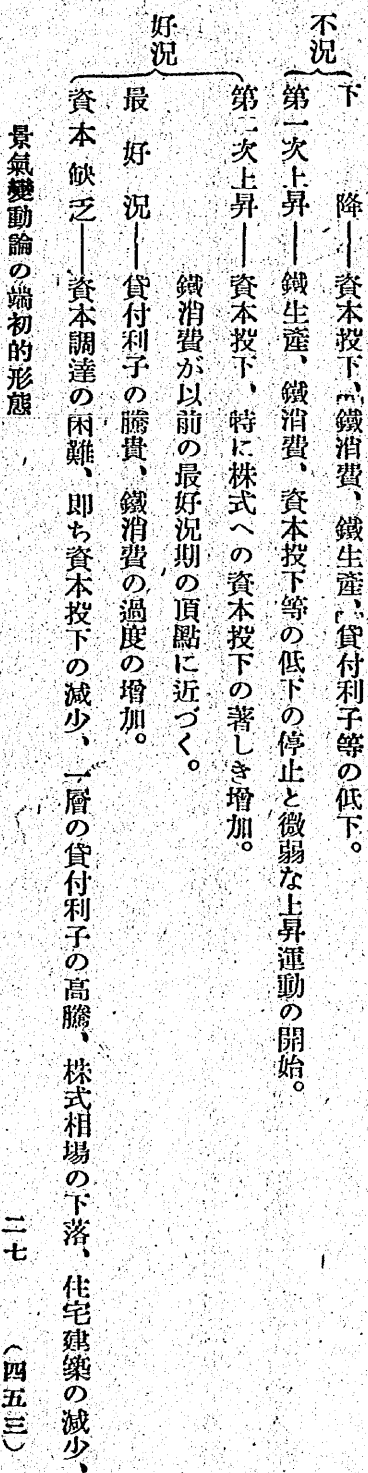 不況
下降――資本投下、鐵消費、鐵生產、貸付利子等の低下。
第一次上昇――鐵生產、鐵消費、資本投下等の低下の停止と微弱な上昇運動の開始。
好況
第二次上昇――資本投下、特に株式への資本投下の著しき增加。
鐵消費が以前の最好況期の頂點に近づく。
最好況――貸付利子の騰貴、鐵消費の過度の增加。
資本缺乏――資本調達の困難、卽ち資本投下の減少、一層の貸付利子の高騰、株式相場の下落、住宅建築の減少、
景氣變動論の端初的形態
二七
（四五三）